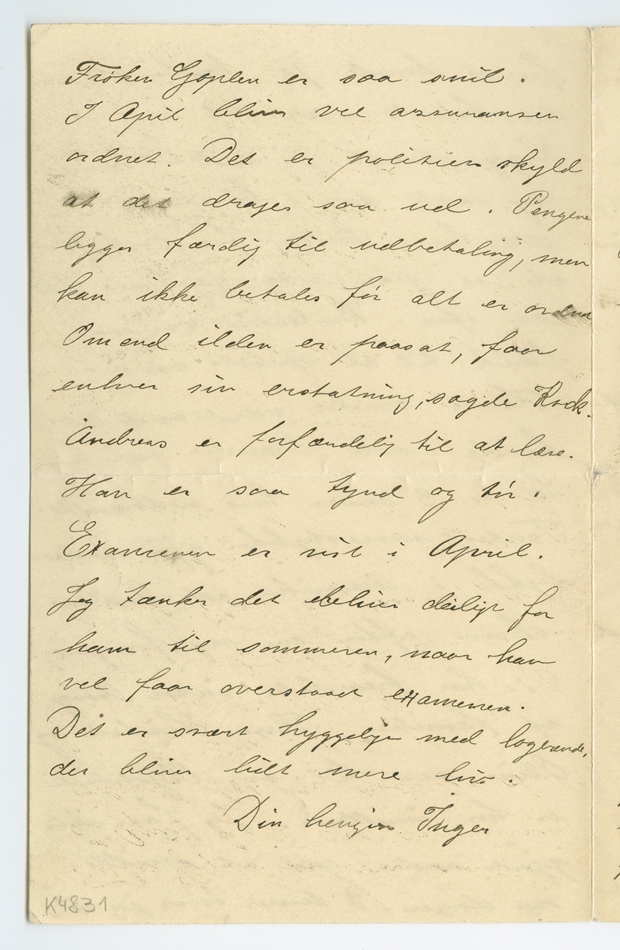 Frøken Goplen er saa snil.
I April bliver vel assuransen
ordnet. Det er politiets skyld
at det drages saa ud. Pengene
ligger færdig til udbetaling, men
kan ikke betales før alt er ordnet
Om end ilden er paasat, faar
enhver sin erstatning, sagde Krok.
Andreas er forfærdelig til at læse.
Han er saa tynd og tør.
Examenen er vist i April.
Jeg tænker det bliver deiligt for
ham til sommeren, naar han
vel faar overstaaet examenen.
Det er svært hyggelig med logerende,
der bliver lidt mere liv.
Din hengivn Inger
K4831